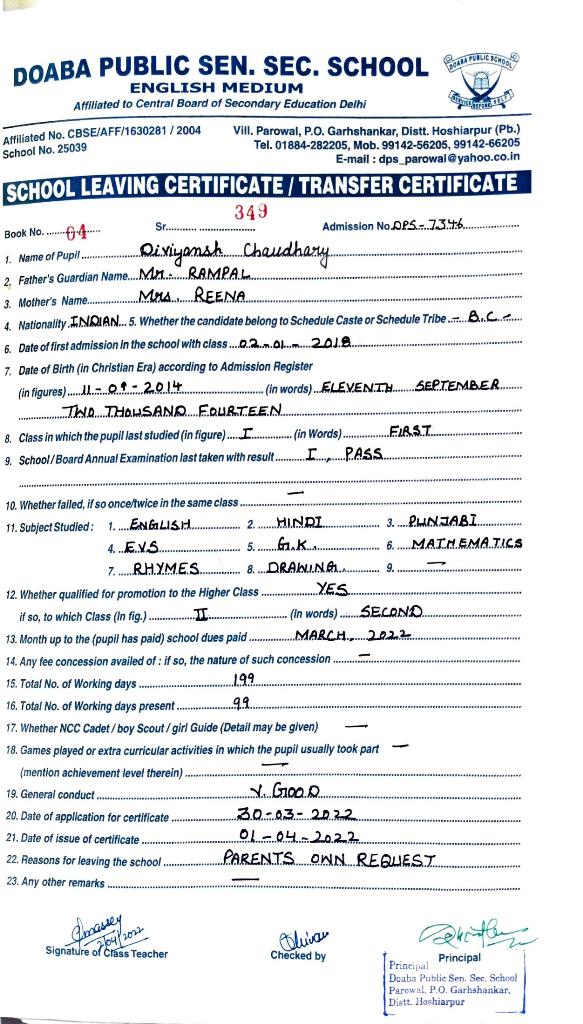 DOABA PUBLIC SEN. SEC. SCHOOL
ENGLISH MEDIUM
Affiliated to Central Board of Secondary Education Delhi
DOABA PUBLIC SCHOOL
SERVICE BEFORE SELF
Affiliated No. CBSE/AFF/1630281 / 2004
School No. 25039
Vill. Parowal, P.O. Garhshankar, Distt. Hoshiarpur (Pb.)
Tel. 01884-282205, Mob. 99142-56205, 99142-66205
E-mail : dps_parowal@yahoo.co.in
SCHOOL LEAVING CERTIFICATE / TRANSFER CERTIFICATE
Book No. 04 Sr. 349 Admission No. DPS-7346
1. Name of Pupil Diviyansh Chaudhary
2. Father's Guardian Name Mr. RAMPAL
3. Mother's Name Mrs. REENA
4. Nationality INDIAN 5. Whether the candidate belong to Schedule Caste or Schedule Tribe - B.C -
6. Date of first admission in the school with class 02-01-2018
7. Date of Birth (in Christian Era) according to Admission Register
(in figures) 11-09-2014 (in words) ELEVENTH SEPTEMBER
TWO THOUSAND FOURTEEN
8. Class in which the pupil last studied (in figure) I (in Words) FIRST
9. School / Board Annual Examination last taken with result I, PASS
10. Whether failed, if so once/twice in the same class —
11. Subject Studied : 1. ENGLISH 2. HINDI 3. PUNJABI
4. EVS 5. G.K. 6. MATHEMATICS
7. RHYMES 8. DRAWING 9. —
12. Whether qualified for promotion to the Higher Class YES
if so, to which Class (In fig.) II (In words) SECOND
13. Month up to the (pupil has paid) school dues paid MARCH, 2022
14. Any fee concession availed of : if so, the nature of such concession —
15. Total No. of Working days 199
16. Total No. of Working days present 99
17. Whether NCC Cadet / boy Scout / girl Guide (Detail may be given) —
18. Games played or extra curricular activities in which the pupil usually took part —
(mention achievement level therein) —
19. General conduct V. GOOD
20. Date of application for certificate 30-03-2022
21. Date of issue of certificate 01-04-2022
22. Reasons for leaving the school PARENTS OWN REQUEST
23. Any other remarks —
2/04/2022
Signature of Class Teacher Checked by Principal
Principal
Doaba Public Sen. Sec. School
Parowal, P.O. Garhshankar,
Distt. Hoshiarpur